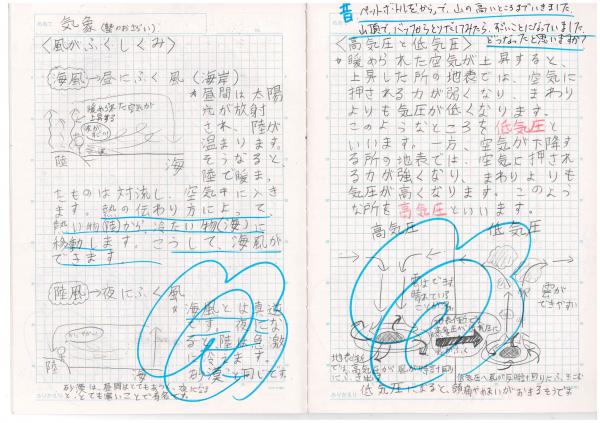 気象(塾のおさらい)
<風がふくしくみ>
海風→昼にふく風(海岸)
*昼間は太陽
光が放射
され、陸が
温まります。
そうなると、
陸で暖ま
暖められた空気が
上昇する
陸
海
たものは対流し、空気中に入き
ます。熱の伝わり方によって、
熱い物(陸)から、冷たい物(海)に
移動します。こうして、海風が
できます。
陸風→夜にふく風
*海風とは真逆
です。夜にな
ると、陸は急激
に冷えます。
砂漠と同じです
陸
海
砂漠は、昼間はとてもあつく、夜になる
と、とても寒いことで有名です。
昔ペットボトルをもって、山の高いところまでいきました。
山頂で、バッグからとりだしてみたら、すごいことになっていました。
どうなったと思いますか?
<高気圧と低気圧>
*暖められた空気が上昇すると、
上昇した所の地表では、空気に
押される力が弱くなり、まわり
よりも気圧が低くなります。
このようなところを低気圧と
いいます。一方、空気が下降す
る所の地表では、空気に押され
る力が強くなり、まわりよりも
気圧が高くなります。このよう
な所を高気圧といいます。
高気圧
低気圧
雲はできず、
晴れている
ことが多い
雲が
できやすい
地表付近
では、高気圧から風が時計回り
にふき出す
低気圧へ風が反時計回りにふきこむ
低気圧によると、頭痛やめまいがおきるそうです